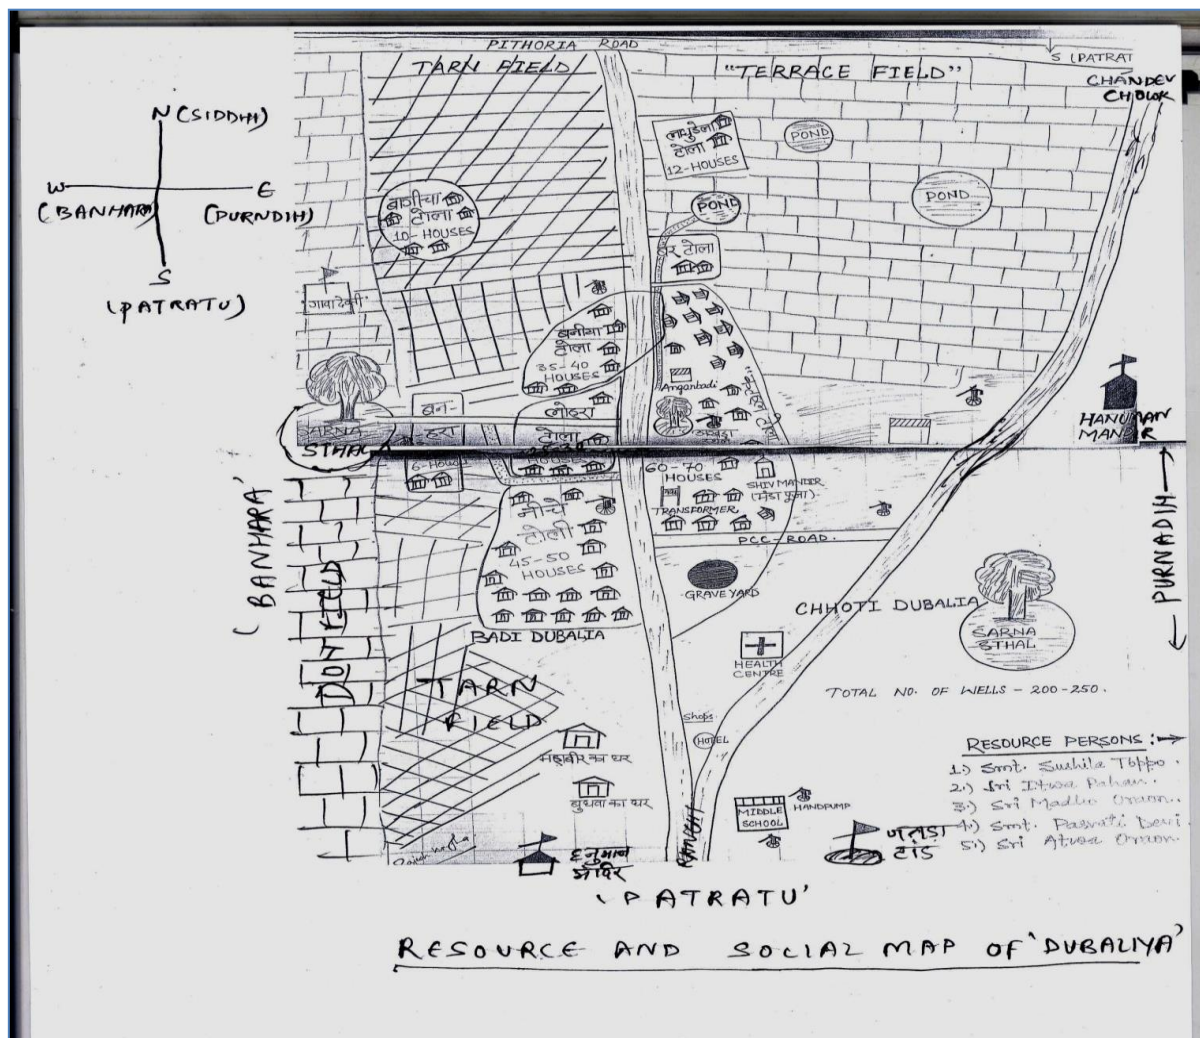 PITHORIA ROAD
S (PATRAT
TARN FIELD
"TERRACE FIELD"
CHANDEV
CHOWK
N (SIDDIH)
W
E
(BANHARA)
(PURNDIH)
S
(PATRATU)
टोला
12-HOUSES
POND
POND
POND
बागीचा
टोला
10-HOUSES
टोला
गांवादेवती
बनीया
टोला
35-40
HOUSES
Anganbadi
लोहरा
टोला
बन-
टहरा
6-HOUSES
SARNA
STHAL
HANUMAN
MANDIR
60-70
HOUSES
SHIV MANDIR
(मंडा पूजा)
TRANSFORMER
PCC-ROAD.
नीचे
टोली
45-50
HOUSES
(BANHARA'
DON FIELD
PURNADIH
GRAVEYARD
CHHOTI DUBALIA
BADI DUBALIA
SARNA
STHAL
HEALTH
CENTRE
TARN
FIELD
TOTAL NO. OF WELLS - 200-250.
Shops
HOTEL
महाबीर का घर
बुधवा का घर
RESOURCE PERSONS:→
1.) Smt. Sushila Toppo.
2.) Sri Itwa Pahan.
3.) Sri Madho Oraon.
4.) Smt. Parvati Devi
5.) Sri Atwa Oraon.
MIDDLE
SCHOOL
HANDPUMP
जतरा
टांड
हनुमान
मंदिर
RANCHI
'PATRATU'
RESOURCE AND SOCIAL MAP OF 'DUBALIYA'